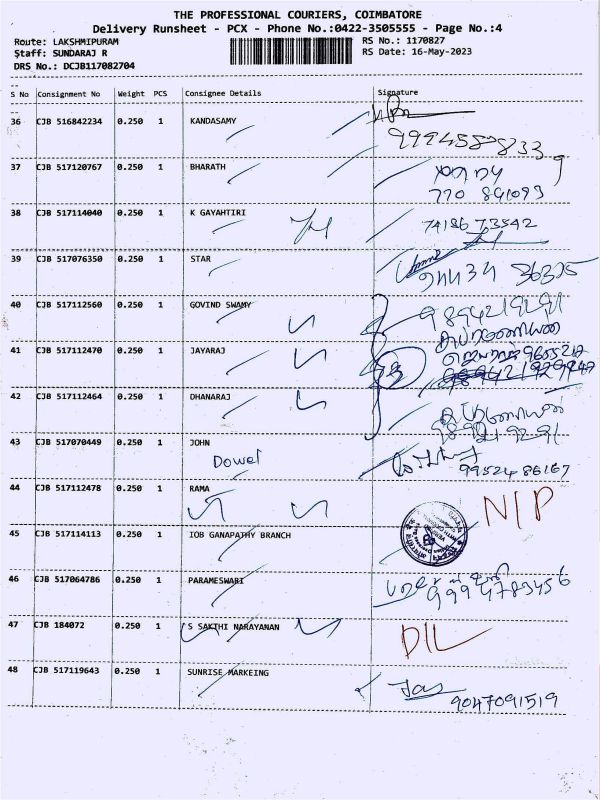 THE PROFESSIONAL COURIERS, COIMBATORE
Delivery Runsheet - PCX - Phone No.:0422-3505555 - Page No.:4
Route: LAKSHMIPURAM RS No.: 1170827
Staff: SUNDARAJ R RS Date: 16-May-2023
DRS No.: DCJB117082704
S No Consignment No Weight PCS Consignee Details Signature
36 CJB 516842234 0.250 1 KANDASAMY
9994589833
37 CJB 517120767 0.250 1 BHARATH
770 891093
38 CJB 517114040 0.250 1 K GAYAHTIRI
74186 73542
39 CJB 517076350 0.250 1 STAR
94434 36325
40 CJB 517112560 0.250 1 GOVIND SWAMY 9894219291
41 CJB 517112470 0.250 1 JAYARAJ
42 CJB 517112464 0.250 1 DHANARAJ
43 CJB 517070449 0.250 1 JOHN
99524 86167
44 CJB 517112478 0.250 1 RAMA N/P
45 CJB 517114113 0.250 1 IOB GANAPATHY BRANCH
46 CJB 517064786 0.250 1 PARAMESWARI
9994783456
47 CJB 184072 0.250 1 S SAKTHI NARAYANAN D/L
48 CJB 517119643 0.250 1 SUNRISE MARKEING
9047091519